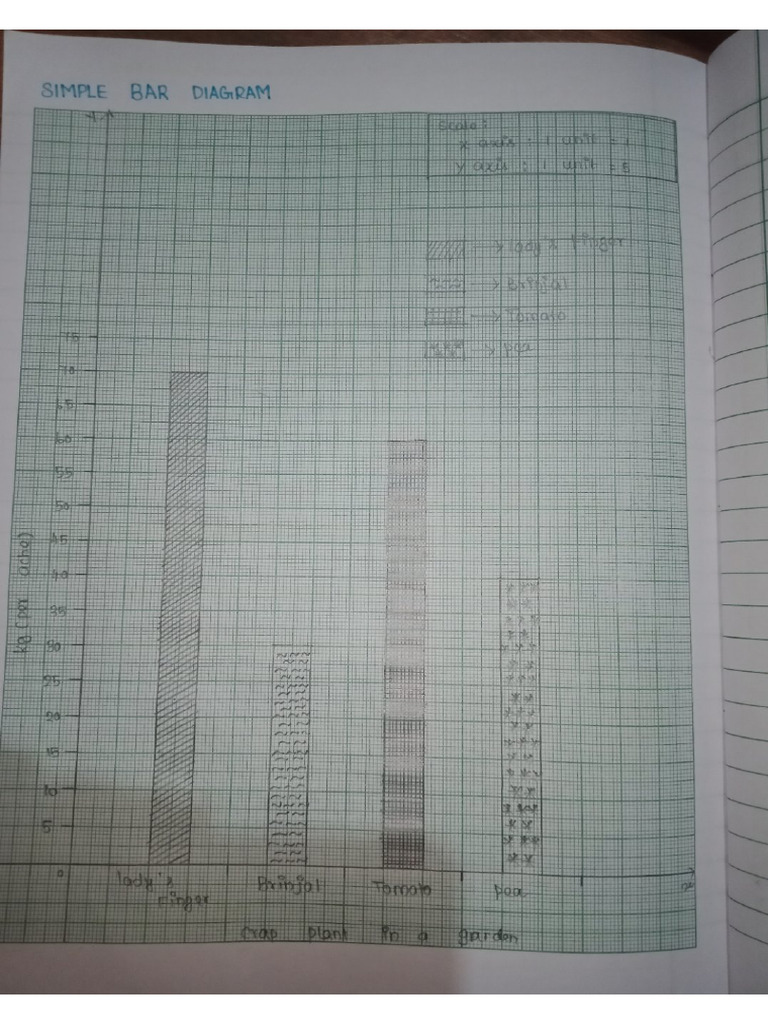 SIMPLE BAR DIAGRAM
Y
Scale:
X axis : 1 unit = 1
Y axis : 1 unit = 5
→ lady's finger
→ Brinjal
→ Tomato
→ pea
75
70
65
60
55
50
45
40
35
30
25
20
15
10
5
0
kg (per ache)
lady's finger
Brinjal
Tomato
pea
x
Crap plant in a garden